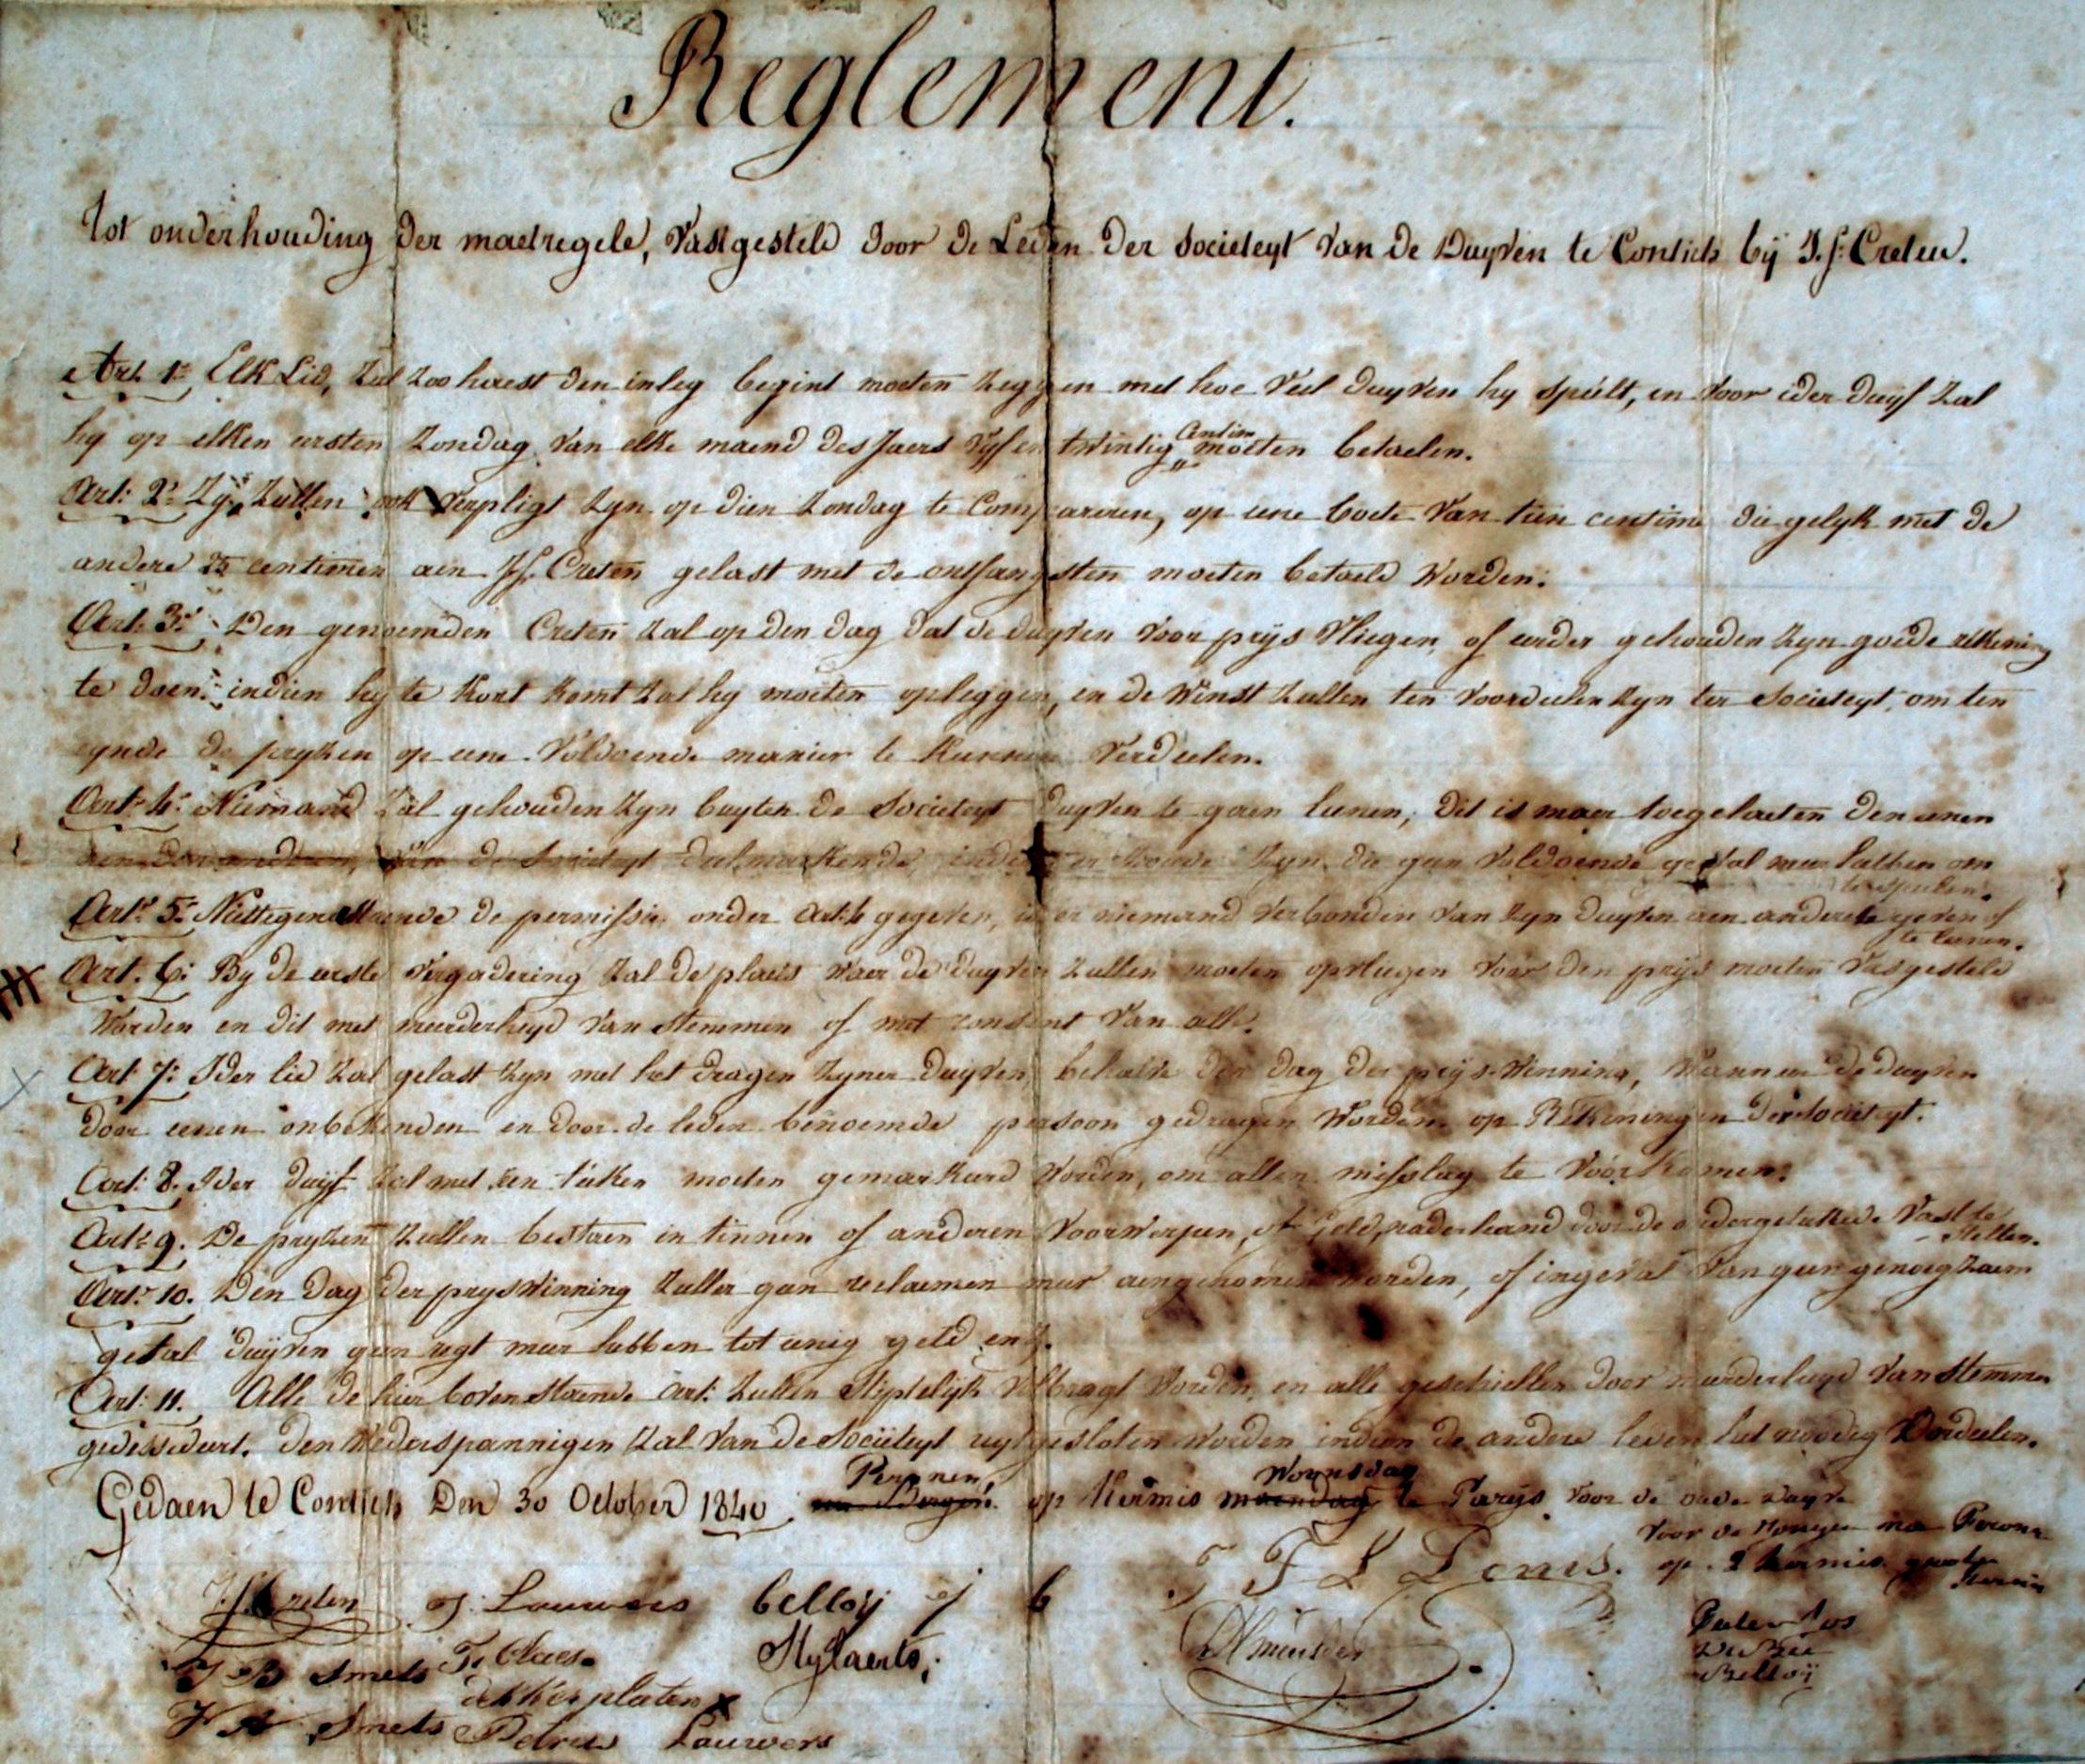 Reglement.
Tot onderhouding der maetregele, vastgesteld door de Leden der Societeyt van de Duyven te Contich by J. f. Creten.
Art. 1: Elk Lid, zal zoo haest den inleg begint moeten zeggen met hoe veel duyven hy spielt, en voor ider duyf zal
hy op elken eersten zondag van elke maend des Jaers vyf en twintig Centim moeten betaelen.
Art: 2: Zy zullen ook verpligt zyn op dien zondag te Compareren, op eene boete van tien centime die gelyk met de
andere 25 centimen aen J.f. Creten gelast met de ontfangsten moeten betaeld worden.
Art: 3: Den genoemden Creten zal op den dag dat de duyven voor prys vliegen of eerder gehouden zyn goede rekening
te doen: indien hy te kort komt zal hy moeten opleggen, en de winst zullen ten voordeelen zyn der Societeyt, om ten
eynde de pryzen op eene voldoende manier te kunnen verdeelen.
Art: 4: Niemand zal gehouden zyn buyten de Societeyt duyven te gaen leenen, dit is maer toegelaeten den eenen
aen den anderen, van de Societeyt deelmaekende, indien er zyn die geen voldoende getal meer hebben om
te speelen.
Art: 5: Niettegenstaende de permissie onder Art: 4 gegeven, is er niemand verbonden van zyn duyven aen andere te geven of
te leenen.
Art. 6: By de eerste vergadering zal de plaets waer de duyven zullen moeten opvliegen voor den prys moeten vasgesteld
worden en dit met meerderheyd van stemmen of met consent van alle.
Art: 7: Ider lid zal gelast zyn met het dragen zyner duyven, behalve den dag der prys-winning, wanneer de duyven
door eenen onbekenden en door de leden benoemde persoon gedragen worden op Rekeningen der Societeyt.
Art: 8. Ider duyf zal met een teeken moeten gemarkeerd worden, om allen misslag te voorkomen.
Art: 9. De pryzen zullen bestaen in tinnen of anderen voorwerpen, of Geld, naderhand door de ondergeteekende vast te
stellen.
Art: 10. Den dag der pryswinning zullen geen reclaemen meer aengenomen worden, of ingeval van geen genoegzaem
getal duyven geen regt meer hebben tot eenig geld enz.
Art: 11. Alle de hier bovenstaende Art: zullen stiptelyk volbragt worden, en alle geschillen door meerderheyd van stemmen
gedessideert. Den wederspannigen zal van de Societeyt uytgesloten worden indien de andere leden het noodig oordeelen.
Peronnen, Woensdag
Gedaen te Contich Den 30 October 1840. op Kermis maendag te Parys voor de oude duyve
voor de Jonge
op 2 kermis
J.f. Creten J. Lauwers Belloy J F L Denis.
J B Smets F. Claes Stylaerts
Dekkerplaten X
J A Smets Petrus Lauwers
Peeter Vos
De Bie
Belloy